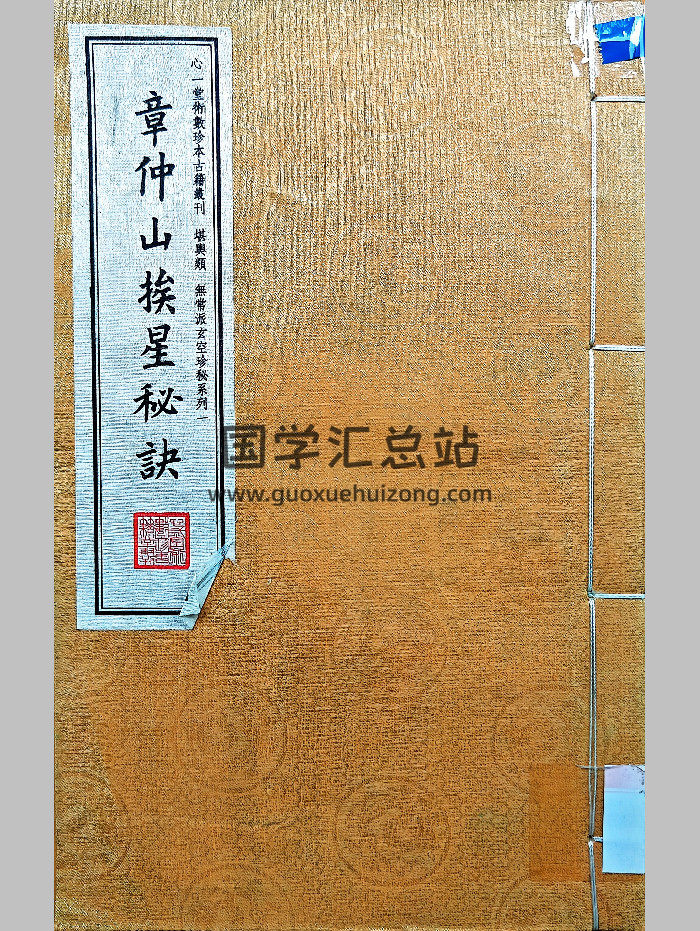 心一堂術數珍本古籍叢刊 堪輿類 無常派玄空珍秘系列一
章仲山挨星秘訣
国学汇总站
www.guoxuehuizong.com